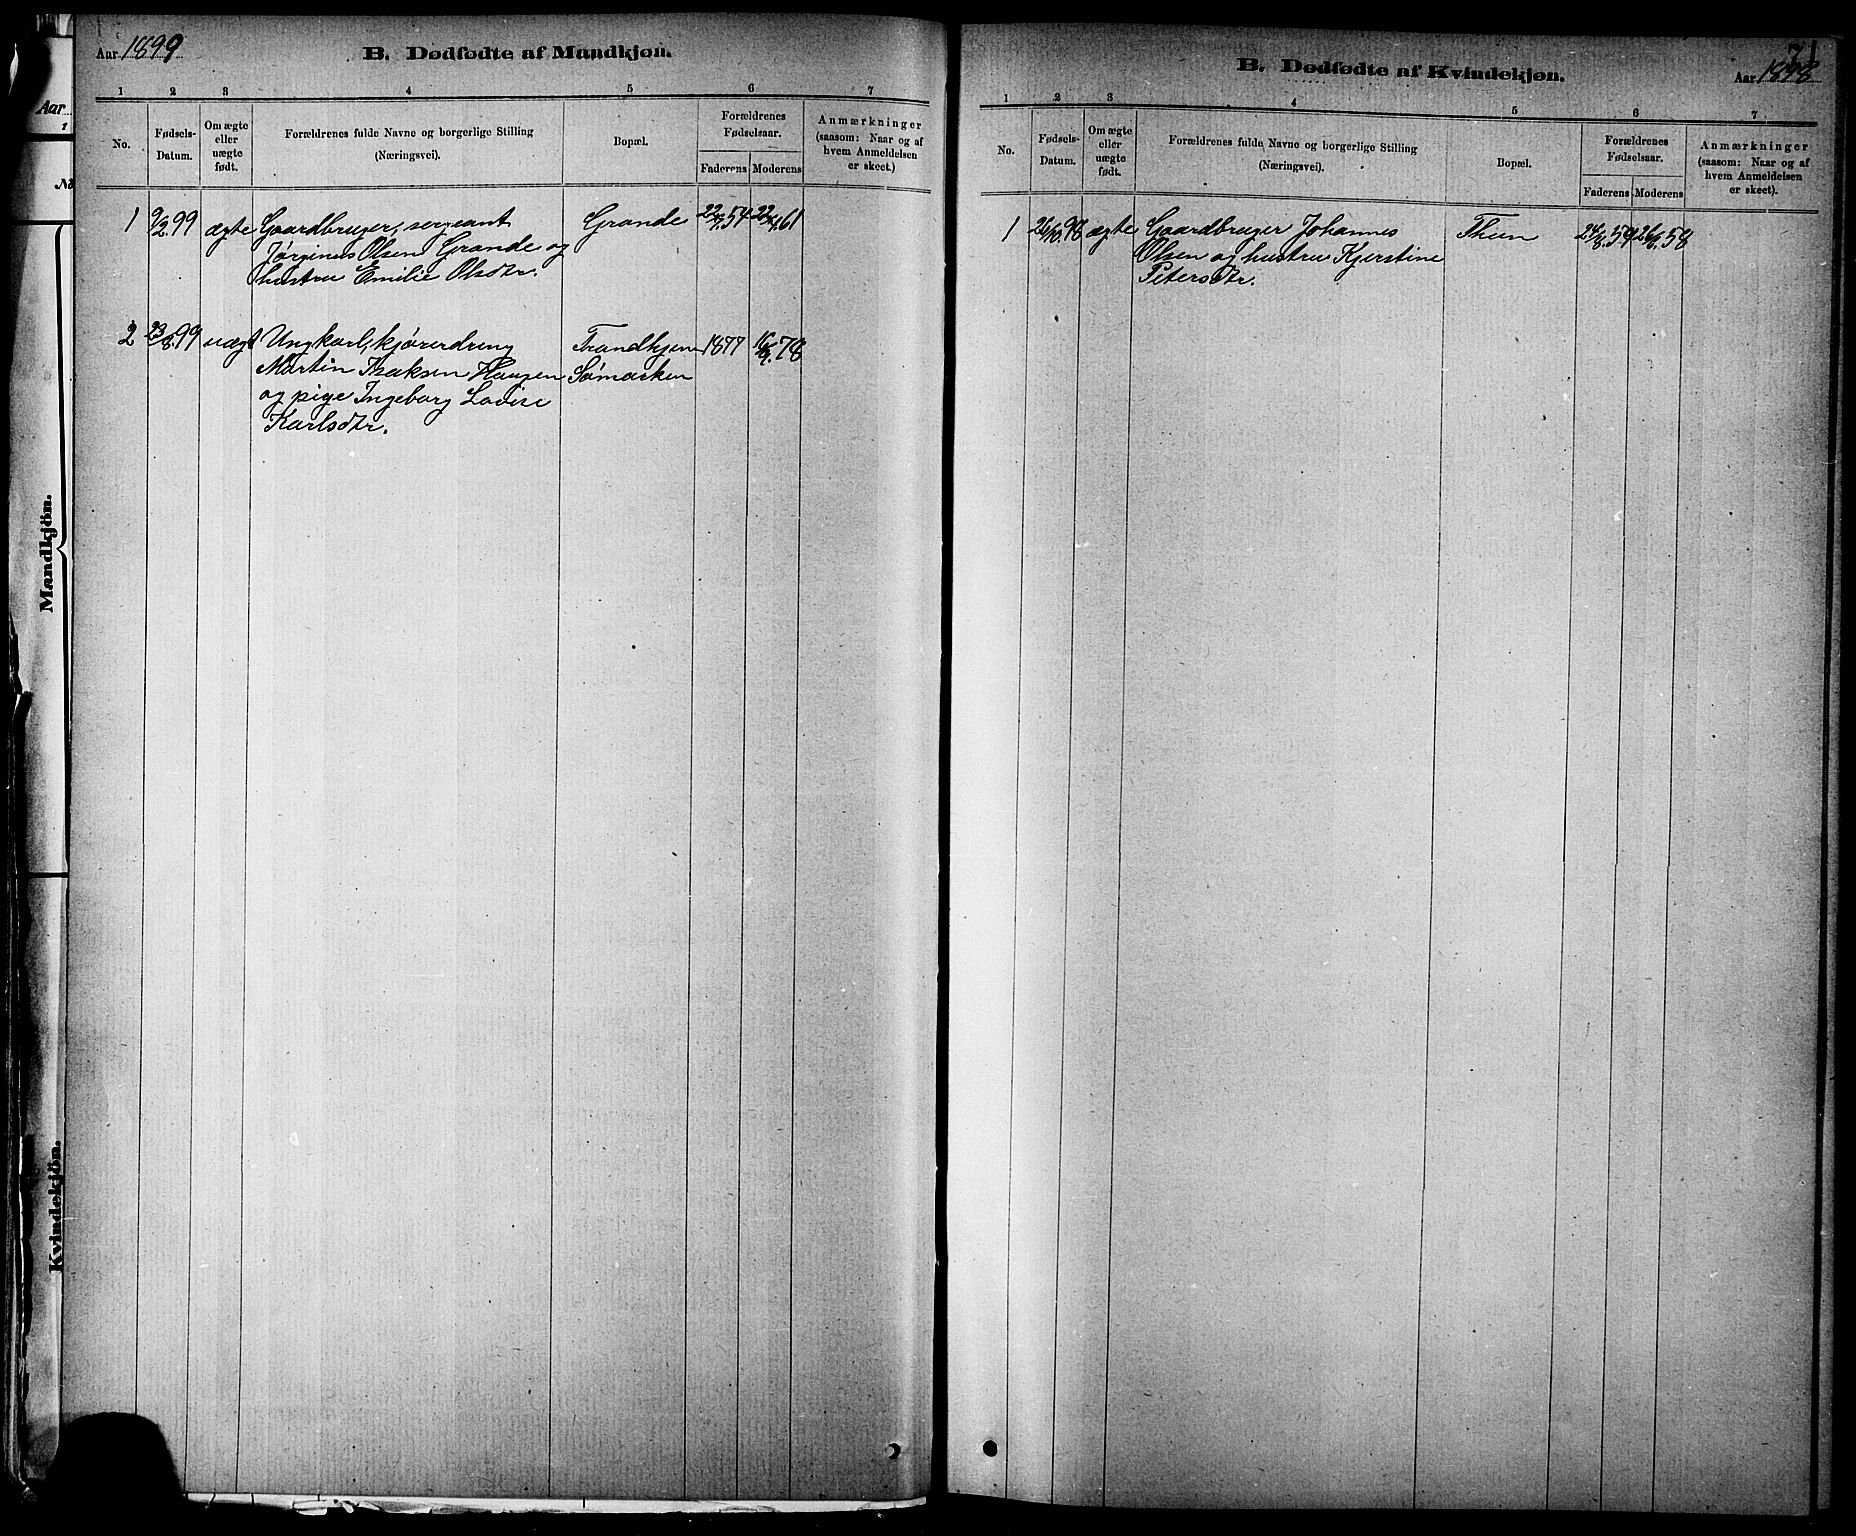 Aar 1899
B. Dødfødte af Mandkjøn.
1 2 3 4 5 6 7
No.
Fødsels-
Datum.
Om ægte
eller
uægte
født.
Forældrenes fulde Navne og borgerlige Stilling
(Næringsvei).
Bopæl.
Forældrenes
Fødselsaar.
Faderens Moderens
Anmærkninger
(saasom: Naar og af
hvem Anmeldelsen
er skeet.)
1 9/2 99 ægte Gaardbruger, sergeant Grande 54 61
Jørginus Olsen Grande og
hustru Emilie Olsdtr.
2 23/8 99 uægt Ungkarl, kjøredreng Trondhjem 1877 78
Martin Isaksen Haugen Sømarken
og pige Ingeborg Lovise
Karlsdtr.
Aar
1
No
Mandkjön.
Kvindekjön.
71
B. Dødfødte af Kvindekjøn.
Aar 1898
1 2 3 4 5 6 7
No.
Fødsels-
Datum.
Om ægte
eller
uægte
født.
Forældrenes fulde Navne og borgerlige Stilling
(Næringsvei).
Bopæl.
Forældrenes
Fødselsaar.
Faderens Moderens
Anmærkninger
(saasom: Naar og af
hvem Anmeldelsen
er skeet).
1 26/10 98 ægte Gaardbruger Johannes Thun 59 58
Olsen og hustru Kjerstine
Petersdtr.